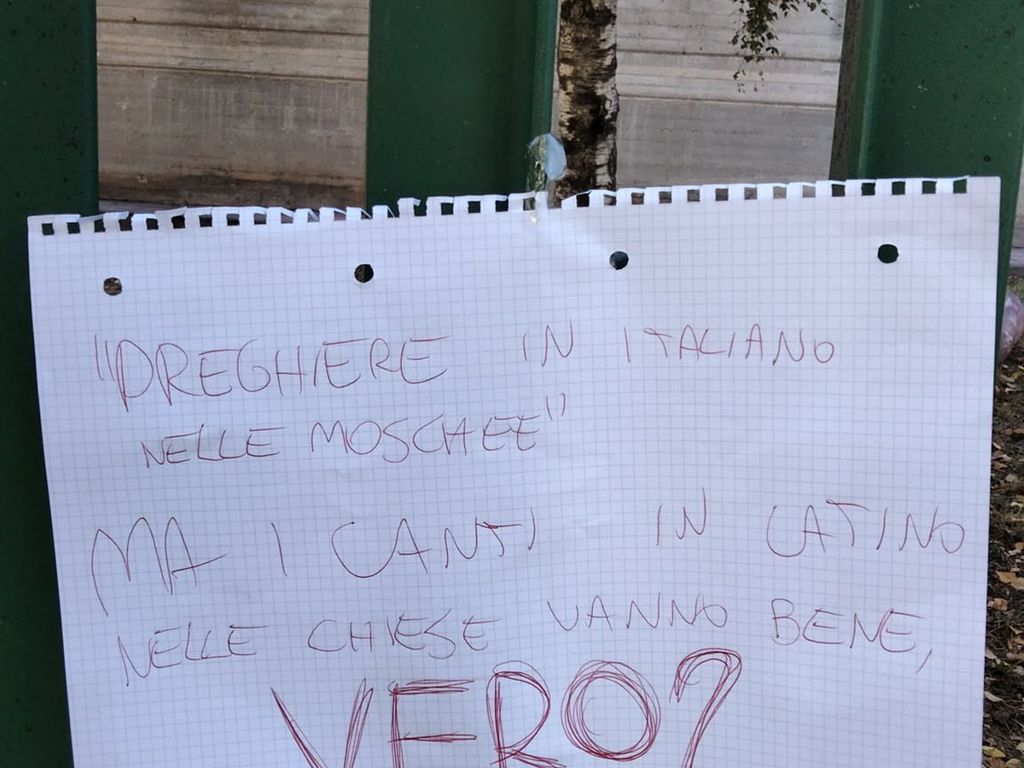 "PREGHIERE IN ITALIANO
NELLE MOSCHEE"
MA I CANTI IN LATINO
NELLE CHIESE VANNO BENE,
VERO?